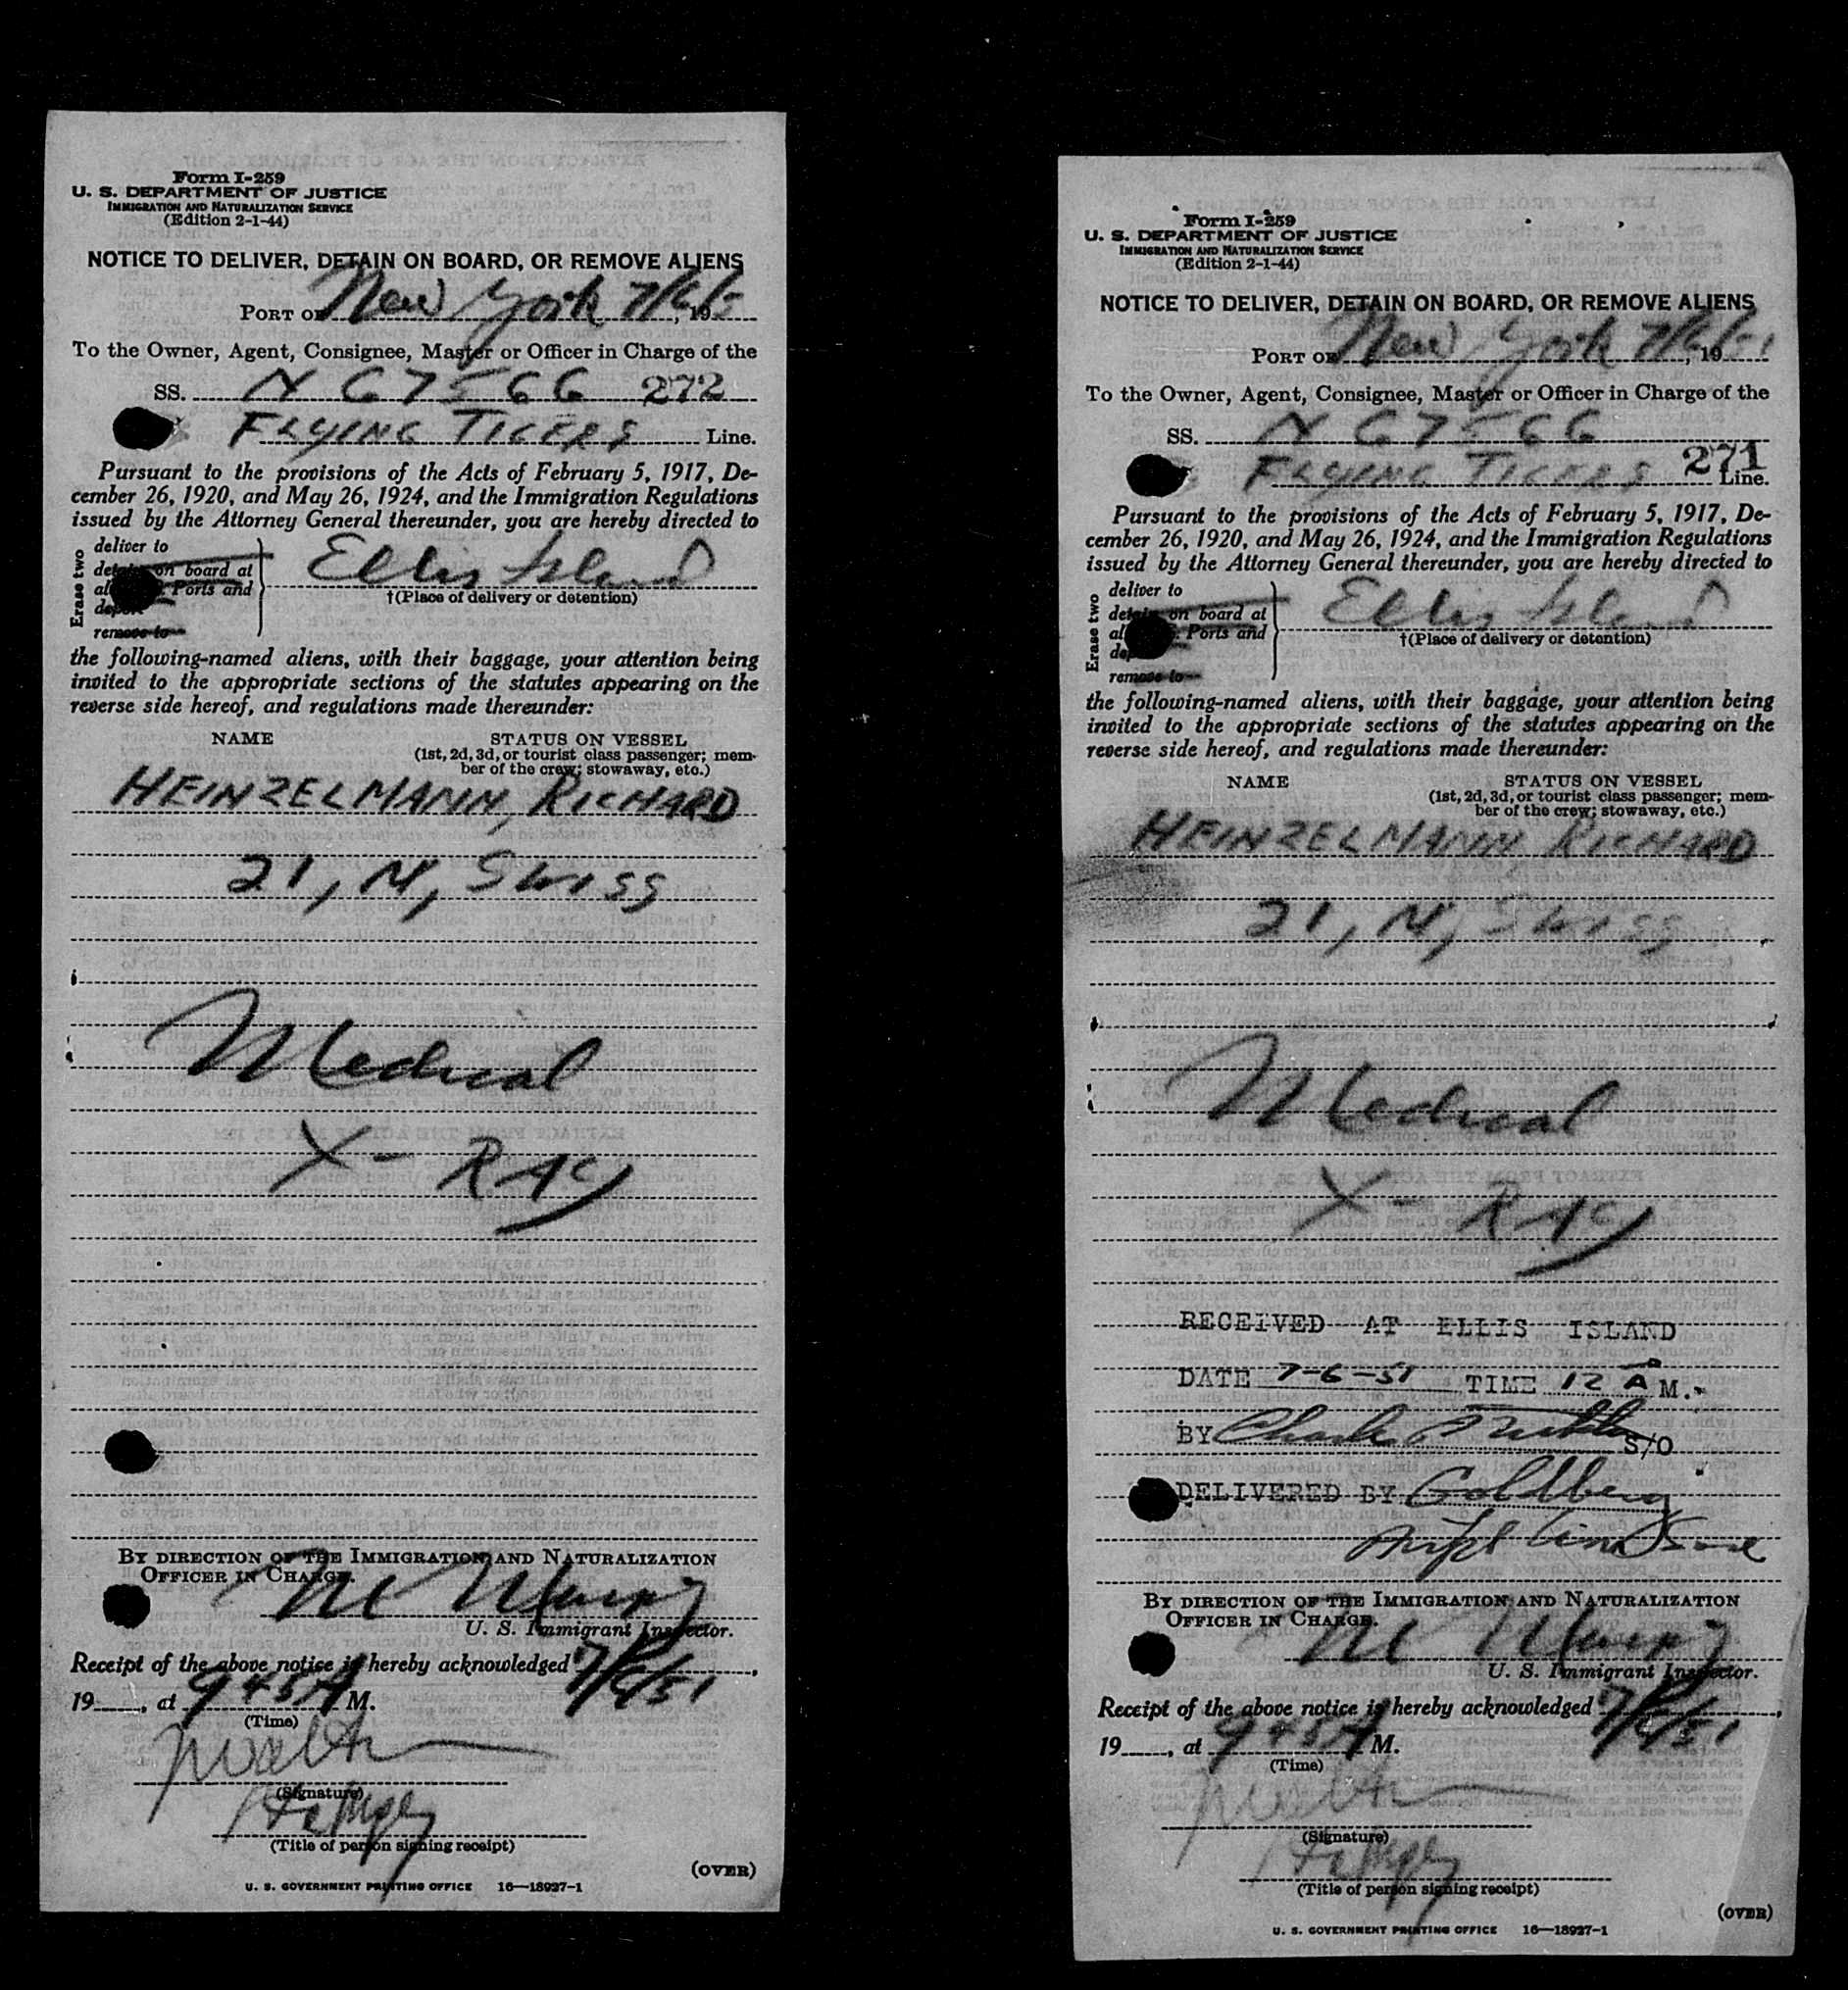 Form I-259
U. S. DEPARTMENT OF JUSTICE
IMMIGRATION AND NATURALIZATION SERVICE
(Edition 2-1-44)
NOTICE TO DELIVER, DETAIN ON BOARD, OR REMOVE ALIENS
PORT OF New York 7/6/5, 19
To the Owner, Agent, Consignee, Master or Officer in Charge of the
SS. N 67566 272
FLYING TIGERS Line.
Pursuant to the provisions of the Acts of February 5, 1917, De-
cember 26, 1920, and May 26, 1924, and the Immigration Regulations
issued by the Attorney General thereunder, you are hereby directed to
Erase two
deliver to
detain on board at
all Ports and
deport
remove to
Ellis Island
†(Place of delivery or detention)
the following-named aliens, with their baggage, your attention being
invited to the appropriate sections of the statutes appearing on the
reverse side hereof, and regulations made thereunder:
NAME STATUS ON VESSEL
(1st, 2d, 3d, or tourist class passenger; mem-
ber of the crew; stowaway, etc.)
HEINZELMANN, RICHARD
21, M, Swiss
Medical
X-RAY
BY DIRECTION OF THE IMMIGRATION AND NATURALIZATION
OFFICER IN CHARGE.
U. S. Immigrant Inspector.
Receipt of the above notice is hereby acknowledged 7/6/51,
19, at 945 A M.
(Time)
(Signature)
(Title of person signing receipt)
(OVER)
U. S. GOVERNMENT PRINTING OFFICE 16—18927-1
Form I-259
U. S. DEPARTMENT OF JUSTICE
IMMIGRATION AND NATURALIZATION SERVICE
(Edition 2-1-44)
NOTICE TO DELIVER, DETAIN ON BOARD, OR REMOVE ALIENS
PORT OF New York 7/6/51, 19
To the Owner, Agent, Consignee, Master or Officer in Charge of the
SS. N 67566
FLYING TIGERS 271 Line.
Pursuant to the provisions of the Acts of February 5, 1917, De-
cember 26, 1920, and May 26, 1924, and the Immigration Regulations
issued by the Attorney General thereunder, you are hereby directed to
Erase two
deliver to
detain on board at
all Ports and
remove to
Ellis Island
†(Place of delivery or detention)
the following-named aliens, with their baggage, your attention being
invited to the appropriate sections of the statutes appearing on the
reverse side hereof, and regulations made thereunder:
NAME STATUS ON VESSEL
(1st, 2d, 3d, or tourist class passenger; mem-
ber of the crew; stowaway, etc.)
HEINZELMANN RICHARD
21, M, Swiss
Medical
X-RAY
RECEIVED AT ELLIS ISLAND
DATE 7-6-51 TIME 12 A M.
BY S/O
DELIVERED BY Goldberg
BY DIRECTION OF THE IMMIGRATION AND NATURALIZATION
OFFICER IN CHARGE.
U. S. Immigrant Inspector.
Receipt of the above notice is hereby acknowledged 7/6/51,
19, at 945 A M.
(Time)
(Signature)
(Title of person signing receipt)
(OVER)
U. S. GOVERNMENT PRINTING OFFICE 16—18927-1